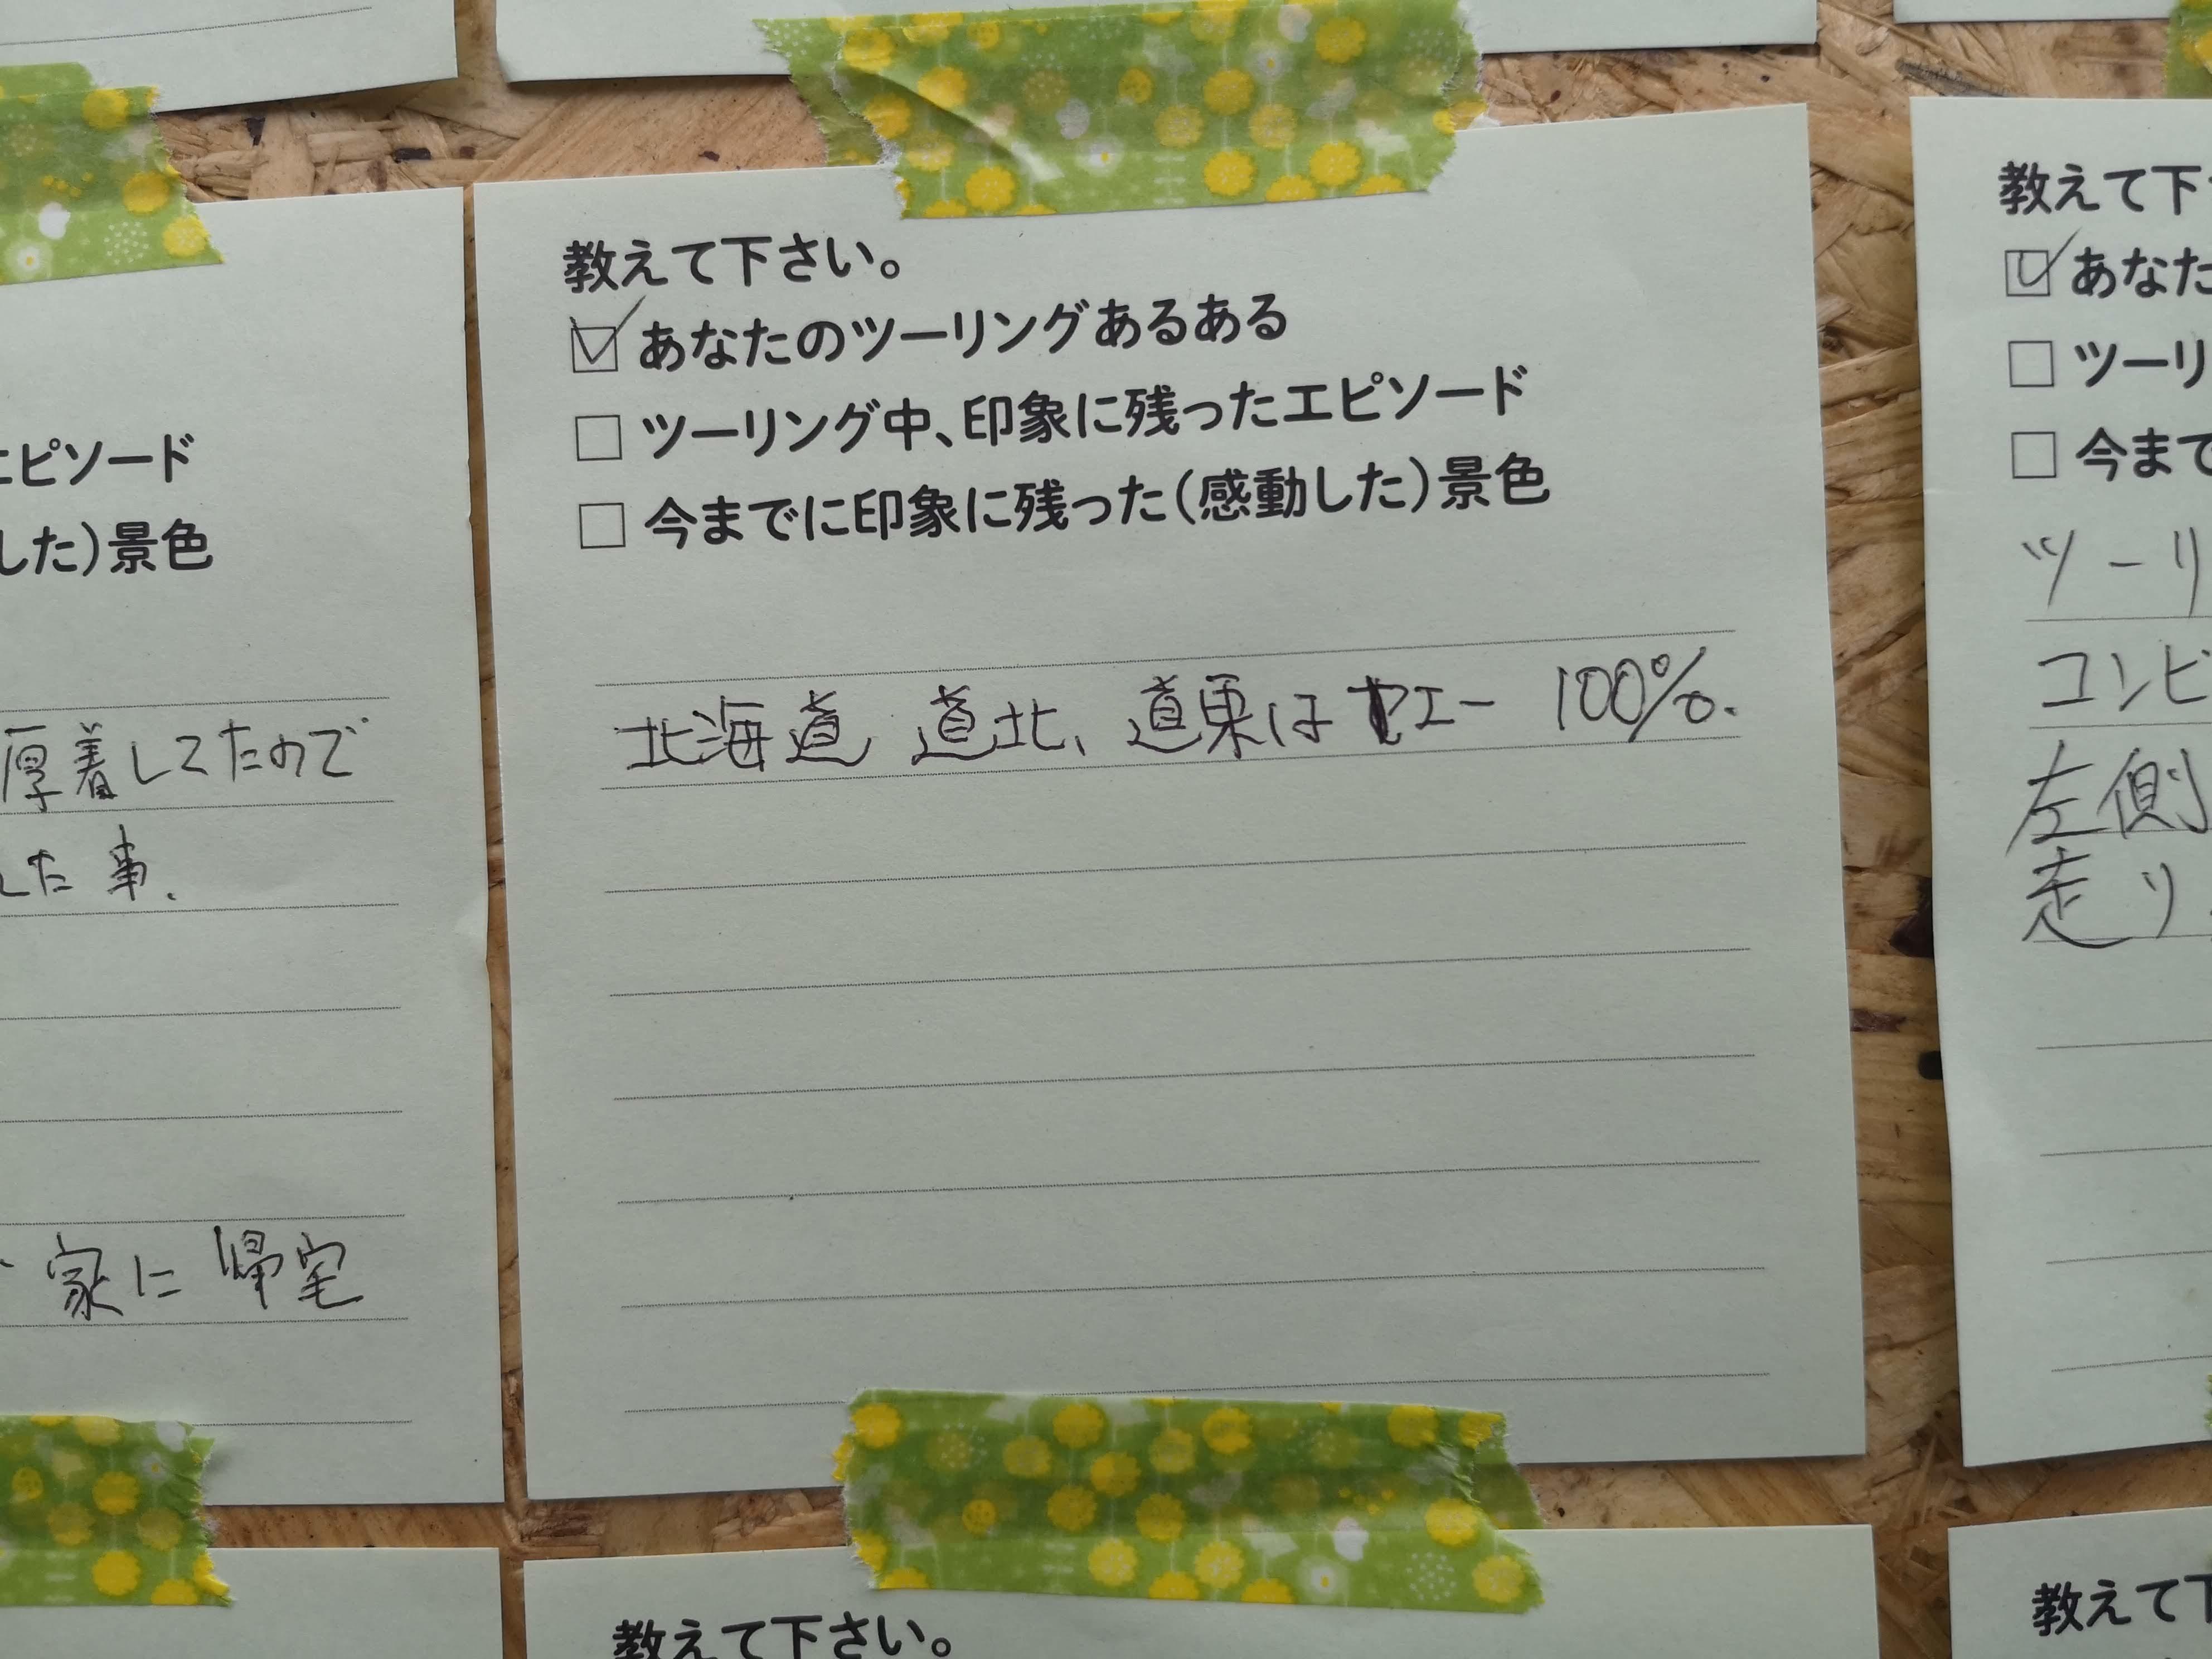 エピソード
した)景色
厚着してたので
した事.
家に帰宅
教えて下さい。
あなたのツーリングあるある
ツーリング中、印象に残ったエピソード
今までに印象に残った(感動した)景色
北海道 道北、道東は ヤエー 100%.
教えて下
あなた
ツーリ
今まで
ツーリ
コンビ
左側
走り
教えて下さい。
教えて下